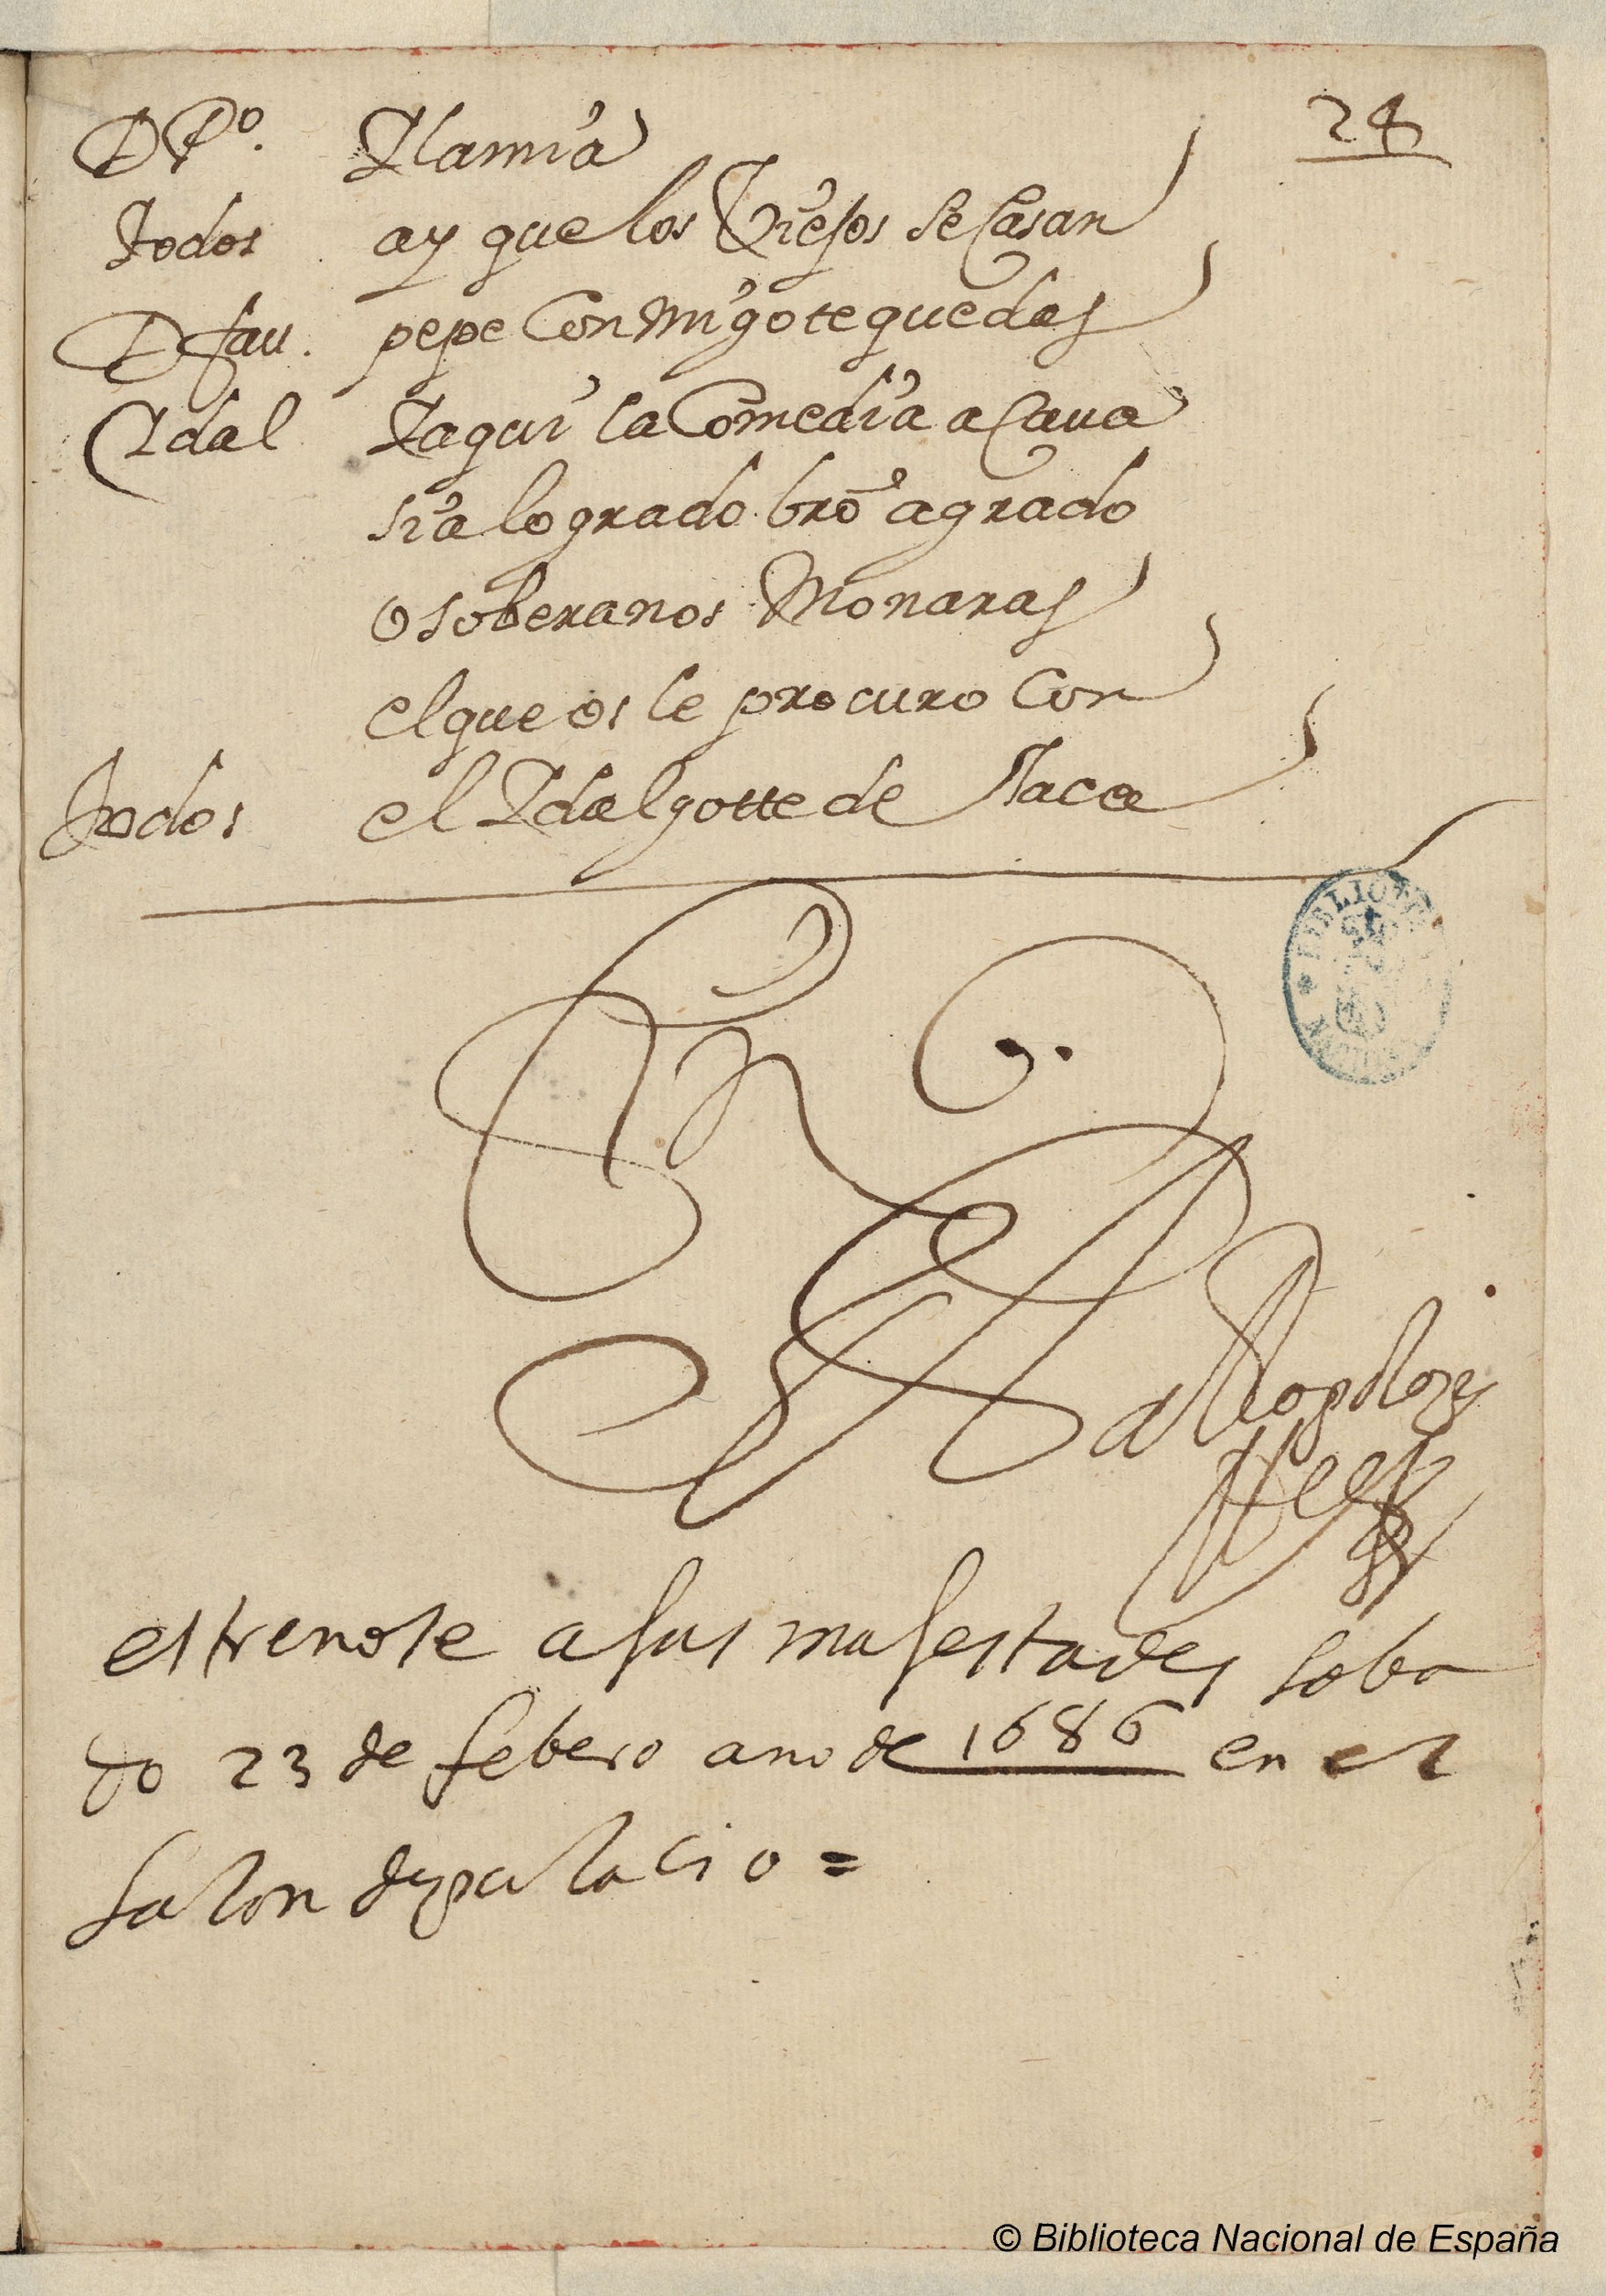 28
D Pº. Ylamia
todos ay que los Viejos se Casan
D fau. pepe Con migo te quedas
Ydal Yaqui la Comedia a Cava
si a logrado bro agrado
o soberanos Monaras
el que os le procuro Con
todos el Ydalgotte de Iaca
BIBLIOTECA NACIONAL
estrenose a sus majestades saba
do 23 de febero ano de 1686 en el
salon de palacio =
© Biblioteca Nacional de España